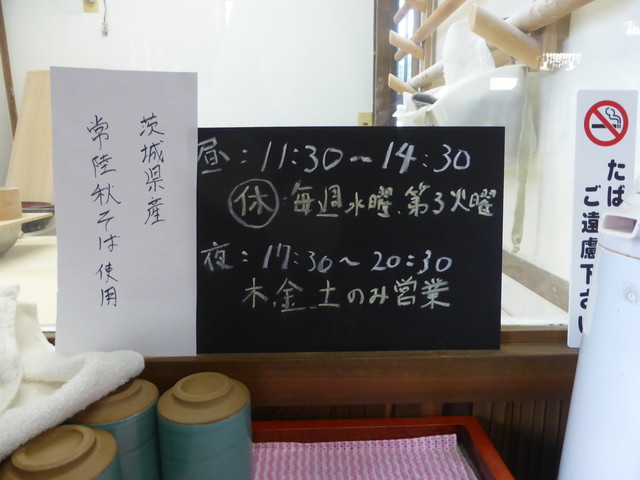 茨城県産
常陸秋そば使用
昼:11:30~14:30
休:毎週水曜、第3火曜
夜:17:30~20:30
木、金、土のみ営業
たば
ご遠慮下さい